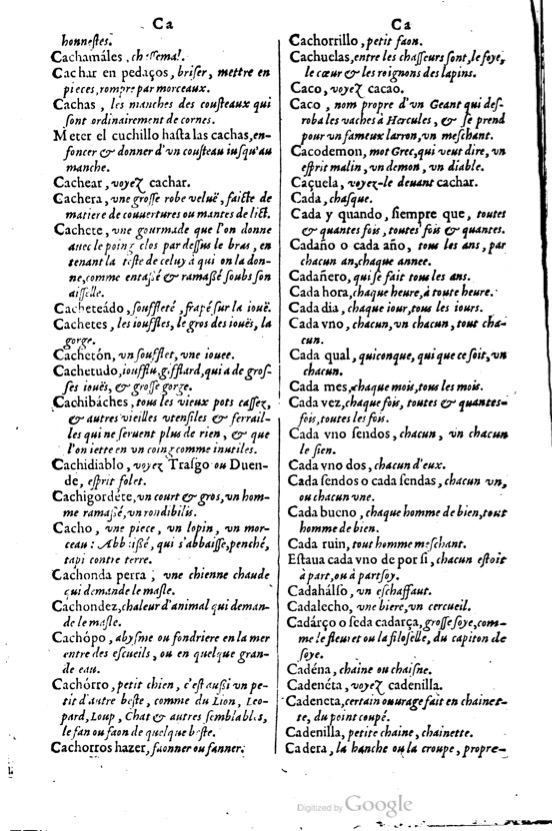 Ca
honneſtes.
Cachamáles, chemal.
Cachar en pedaços, briſer, mettre en
pieces, rompre par morceaux.
Cachas, les manches des couſteaux qui
ſont ordinairement de cornes.
Meter el cuchillo haſta las cachas, en-
foncer & donner d'vn couſteau iuſqu'au
manche.
Cachear, voyeʒ cachar.
Cachera, vne groſſe robe veluë, faicte de
matiere de couuertures ou mantes de lict.
Cachete, vne gourmade que l'on donne
auec le poing clos par deſſus le bras, en
tenant la teſte de celuy à qui on la don-
ne, comme entaſſé & ramaßé ſoubs ſon
aiſſelle.
Cacheteádo, ſouffleté, frapé ſur la iouë.
Cachetes, les iouffles, le gros des iouës, la
gorge.
Cachetón, vn ſoufflet, vne iouee.
Cachetudo, iouffiu, gifflard, qui a de groſ-
ſes iouës, & groſſe gorge.
Cachibáches, tous les vieux pots caſſeʒ,
& autres vieilles vtenſiles & ferrail-
les qui ne ſeruent plus de rien, & que
l'on iette en vn coing comme inutiles.
Cachidiablo, voyeʒ Traſgo ou Duen-
de, eſprit folet.
Cachigordéte, vn court & gros, vn hom-
me ramaßé, vn rondibilis.
Cacho, vne piece, vn lopin, vn mor-
ceau: Abbaißé, qui s'abbaiſſe, penché,
tapi contre terre.
Cachonda perra; vne chienne chaude
qui demande le maſle.
Cachondez, chaleur d'animal qui deman-
de le maſle.
Cachópo, abyſme ou fondriere en la mer
entre des eſcueils, ou en quelque gran-
de eau.
Cachórro, petit chien, c'eſt außi vn pe-
tit d'autre beſte, comme du Lion, Leo-
pard, Loup, Chat & autres ſemblables,
le fan ou faon de quelque beſte.
Cachorros hazer, faonner ou fanner.
Ca
Cachorrillo, petit faon.
Cachuelas, entre les chaſſeurs ſont, le foye,
le cœur & les roignons des lapins.
Caco, voyeʒ cacao.
Caco, nom propre d'vn Geant qui deſ-
roba les vaches à Hercules, & ſe prend
pour vn fameux larron, vn meſchant.
Cacodemon, mot Grec, qui veut dire, vn
eſprit malin, vn demon, vn diable.
Caçuela, voyeʒ-le deuant cachar.
Cada, chaſque.
Cada y quando, ſiempre que, toutes
& quantes fois, toutes fois & quantes.
Cadaño o cada año, tous les ans, par
chacun an, chaque annee.
Cadañero, qui ſe fait tous les ans.
Cada hora, chaque heure, à toute heure.
Cada dia, chaque iour, tous les iours.
Cada vno, chacun, vn chacun, tout cha-
cun.
Cada qual, quiconque, qui que ce ſoit, vn
chacun.
Cada mes, chaque mois, tous les mois.
Cada vez, chaque fois, toutes & quantes-
fois, toutes les fois.
Cada vno ſendos, chacun, vn chacun
le ſien.
Cada vno dos, chacun d'eux.
Cada ſendos o cada ſendas, chacun vn,
ou chacun vne.
Cada bueno, chaque homme de bien, tout
homme de bien.
Cada ruin, tout homme meſchant.
Eſtaua cada vno de por ſi, chacun eſtoit
à part, ou à part ſoy.
Cadahálſo, vn eſchaffaut.
Cadalecho, vne biere, vn cercueil.
Cadárço o ſeda cadarça, groſſe ſoye, com-
me le fleuret ou la filoſelle, du capiton de
ſoye.
Cadéna, chaine ou chaiſne.
Cadenéta, voyeʒ cadenilla.
Cadeneta, certain ouurage fait en chainet-
te, du point coupé.
Cadenilla, petite chaine, chainette.
Cadera, la hanche ou la croupe, propre-
Digitized by Google